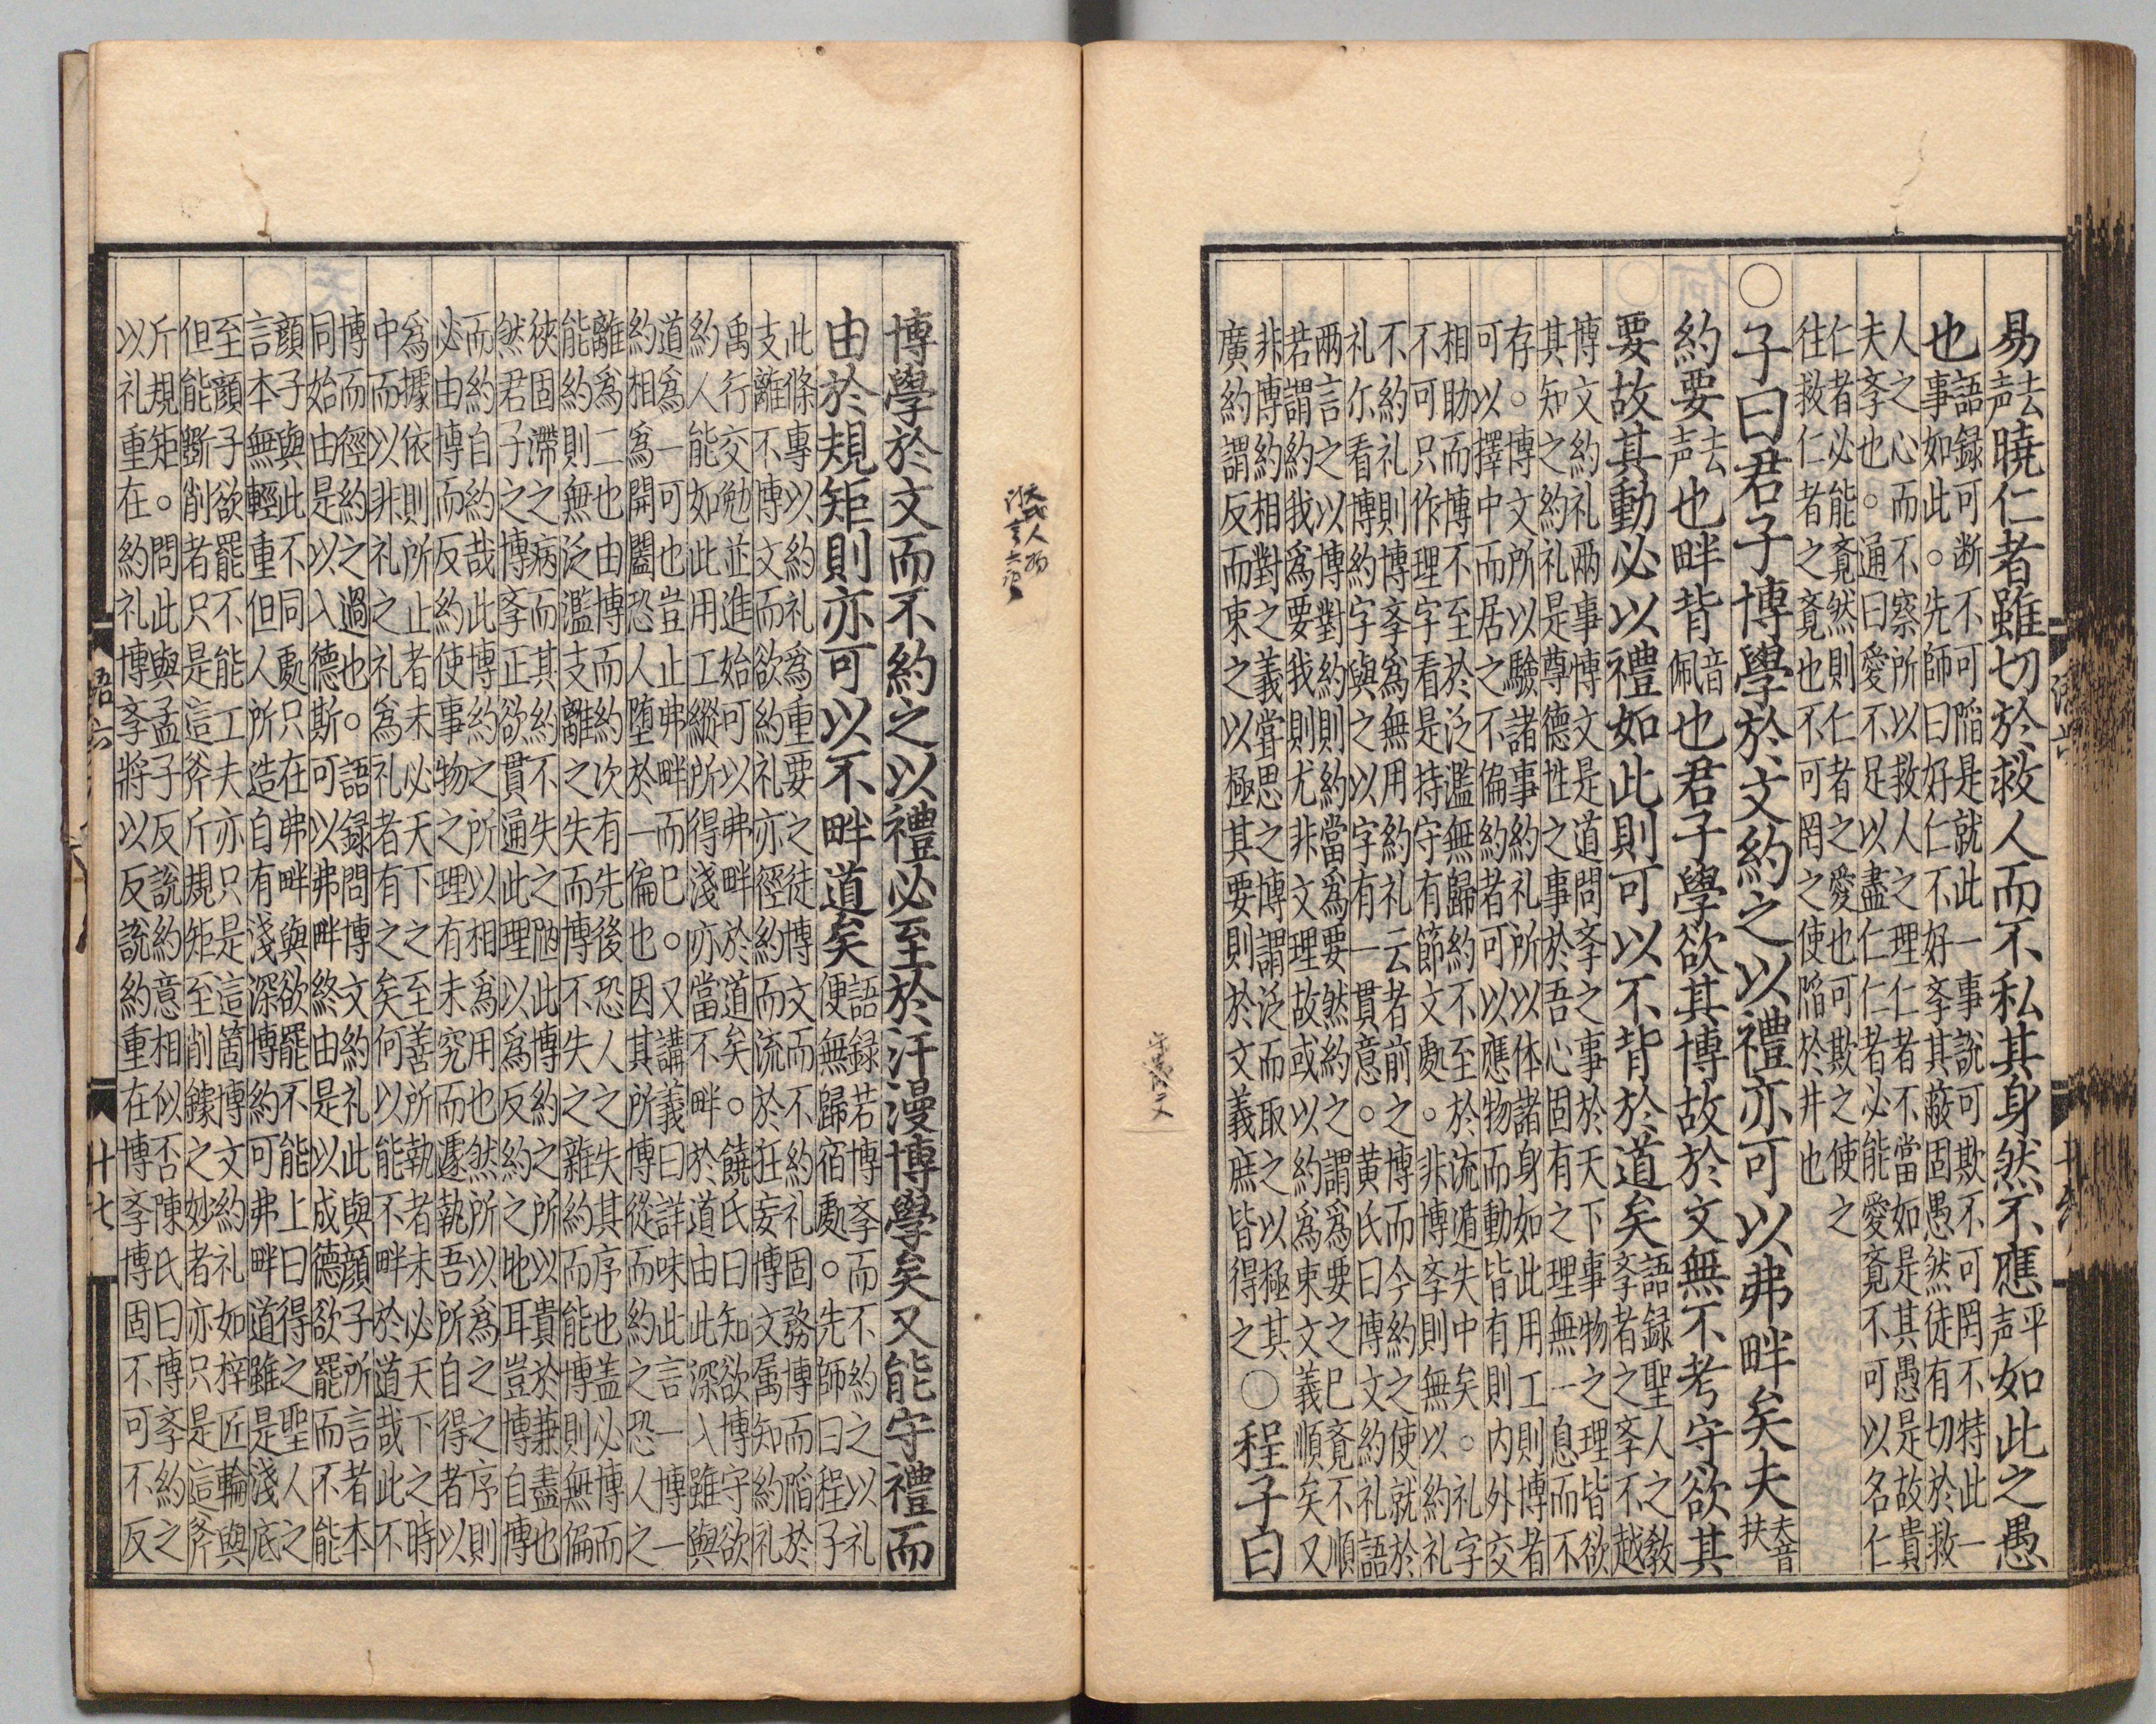 易去声曉仁者雖切於救人而不私其身然不應平声如此之愚
也語録可断不可陥是就此一事説可欺不可罔不特此一
事如此。先師曰好仁不好斈其蔽固愚然徒有切於救
人之心而不察所以救人之理仁者不當如是其愚是故貴
夫斈也。通曰愛不足以盡仁仁者必能愛竟不可以名仁
仁者必能竟然則仁者之愛也可欺之使之
往救仁者之竟也不可罔之使陥於井也
○子曰君子博學於文約之以禮亦可以弗畔矣夫夫音扶
約要去声也畔背音佩也君子學欲其博故於文無不考守欲其
要故其動必以禮如此則可以不背於道矣語録聖人之教
斈者之斈不越
博文約礼兩事博文是道問斈之事於天下事物之理皆欲
其知之約礼是尊德性之事於吾心固有之理無一息而不
存。博文所以驗諸事約礼所以体諸身如此用工則博者
可以擇中而居之不偏約者可以應物而動皆有則内外交
相助而博不至於泛濫無歸約不至於流遁失中矣。礼字
不可只作理字看是持守有節文處。非博斈則無以約礼
不約礼則博斈爲無用約礼云者前之博而今約之使就於
礼尓看博約字與之以字有一貫意。黄氏曰博文約礼語
兩言之以博對約則約當爲要然約之謂爲要之已竟不順
若謂約我爲要我則尤非文理故或以約爲束文義順矣又
非博約相對之義甞思之博謂泛而取之以極其
廣約謂反而束之以極其要則於文義庶皆得之○程子曰
博學於文而不約之以禮必至於汗漫博學矣又能守禮而
由於規矩則亦可以不畔道矣語録若博斈而不約之以礼
便無歸宿處。先師曰程子
此條專以約礼爲重要之徒博文而不約礼固務博而陥於
支離不博文而欲約礼亦徑約而流於狂妄博文属知約礼
禹行交勉並進始可以弗畔於道矣。饒氏曰知欲博守欲
約人能如此用工縱所得淺亦當不畔於道由此深入雖與
道爲一可也豈止弗畔而已。又講義曰詳味此言一博一
約相爲開闔恐人堕於一偏也因其所博從而約之恐人之
離爲二也由博而約次有先後恐人之失其序也盖必博而
能約則無泛濫支離之失而博不失之雜約而能博則無偏
狹固滯之病而其約不失之陋此博約之所以貴於兼盡也
然君子之博斈正欲貫通此理以爲反約之地耳豈博自博
而約自約哉此博約之所以相爲用也然所以爲之之序則
必由博而反約使事物之理有未究而遽執吾所自得者以
爲據依則所止者未必天下之至善所執者未必天下之時
中而以非礼之礼爲礼者有之矣何以能不畔於道哉此不
博而徑約之過也。語録問博文約礼此與顔子所言者本
同始由是以入德斯可以弗畔終由是以成德欲罷而不能
顔子與此不同處只在弗畔與欲罷不能上曰得之聖人之
言本無輕重但人所造自有淺深博約可弗畔道雖是淺底
至顔子欲罷不能工夫亦只是這箇博文約礼如梓匠輪輿
但能斵削者只是這斧斤規矩至削鐻之妙者亦只是這斧
斤規矩。問此與孟子反説約意相似否陳氏曰博斈約之
以礼重在約礼博斈將以反説約重在博斈博固不可不反
語六
十七